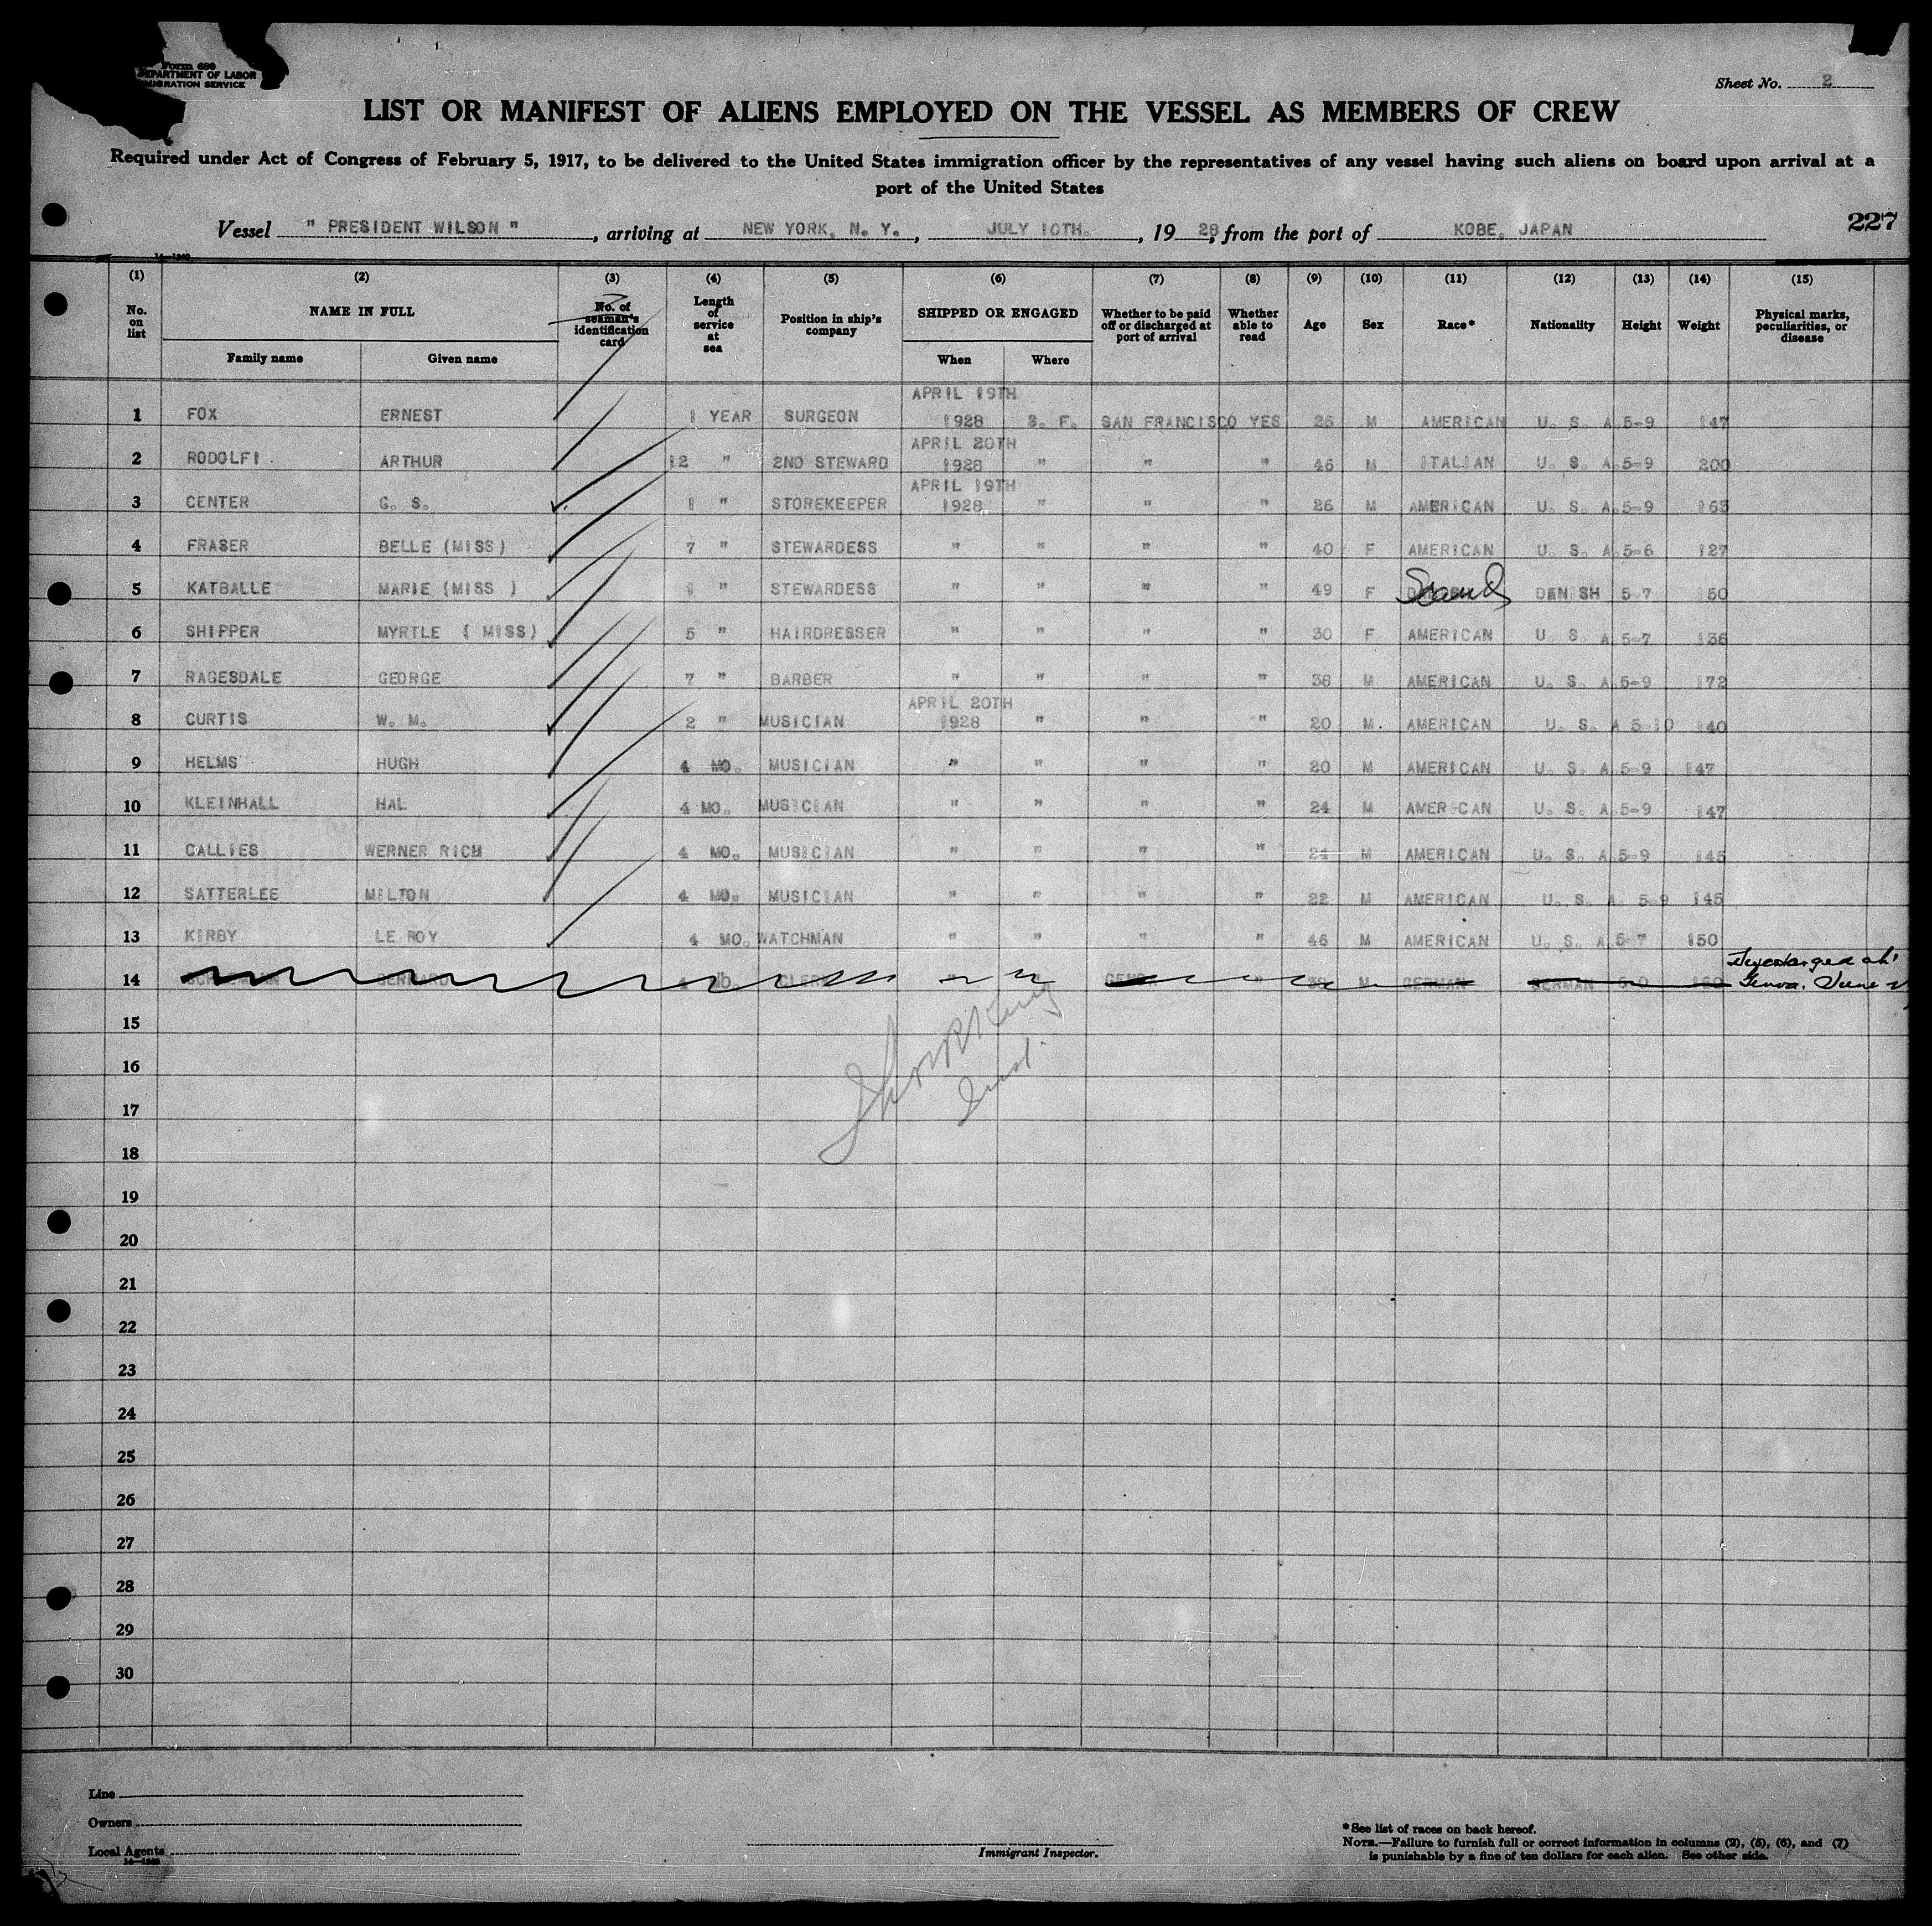 Form 680
DEPARTMENT OF LABOR
IMMIGRATION SERVICE
Sheet No. 2
LIST OR MANIFEST OF ALIENS EMPLOYED ON THE VESSEL AS MEMBERS OF CREW
Required under Act of Congress of February 5, 1917, to be delivered to the United States immigration officer by the representatives of any vessel having such aliens on board upon arrival at a
port of the United States
Vessel " PRESIDENT WILSON ", arriving at NEW YORK, N. Y., JULY 10TH., 19 28, from the port of KOBE, JAPAN
227
(1) (2) (3) (4) (5) (6) (7) (8) (9) (10) (11) (12) (13) (14) (15)
No. on list NAME IN FULL Family name Given name No. of seaman's identification card Length of service at sea Position in ship's company SHIPPED OR ENGAGED When Where Whether to be paid off or discharged at port of arrival Whether able to read Age Sex Race* Nationality Height Weight Physical marks, peculiarities, or disease
1 FOX ERNEST 1 YEAR SURGEON APRIL 19TH 1928 S. F. SAN FRANCISCO YES 26 M AMERICAN U. S. A 5-9 147
2 RODOLFI ARTHUR 12 " 2ND STEWARD APRIL 20TH 1928 " " " 46 M ITALIAN U. S. A 5-9 200
3 CENTER G. S. 1 " STOREKEEPER APRIL 19TH 1928 " " " 26 M AMERICAN U. S. A 5-9 163
4 FRASER BELLE (MISS) 7 " STEWARDESS " " " " 40 F AMERICAN U. S. A 5-6 127
5 KATBALLE MARIE (MISS ) 1 " STEWARDESS " " " " 49 F Scand DENISH 5-7 150
6 SHIPPER MYRTLE ( MISS) 5 " HAIRDRESSER " " " " 30 F AMERICAN U. S. A 5-7 136
7 RAGESDALE GEORGE 7 " BARBER " " " " 38 M AMERICAN U. S. A 5-9 172
8 CURTIS W. M. 2 " MUSICIAN APRIL 20TH 1928 " " " 20 M. AMERICAN U. S. A 5-10 140
9 HELMS HUGH 4 MO. MUSICIAN " " " " 20 M AMERICAN U. S. A 5-9 147
10 KLEINHALL HAL 4 MO. MUSICIAN " " " " 24 M AMERICAN U. S. A 5-9 147
11 CALLIES WERNER RICH 4 MO. MUSICIAN " " " " 24 M AMERICAN U. S. A 5-9 145
12 SATTERLEE MILTON 4 MO. MUSICIAN " " " " 22 M AMERICAN U. S. A. 5-9 145
13 KIRBY LE ROY 4 MO. WATCHMAN " " " " 46 M AMERICAN U. S. A 5-7 150
14 4 MO. CLERK " " " M GERMAN GERMAN Genoa. June
15
16
17
18
19
20
21
22
23
24
25
26
27
28
29
30
Line
Owners
Local Agents
Immigrant Inspector.
*See list of races on back hereof.
NOTE.—Failure to furnish full or correct information in columns (2), (5), (6), and (7)
is punishable by a fine of ten dollars for each alien. See other side.